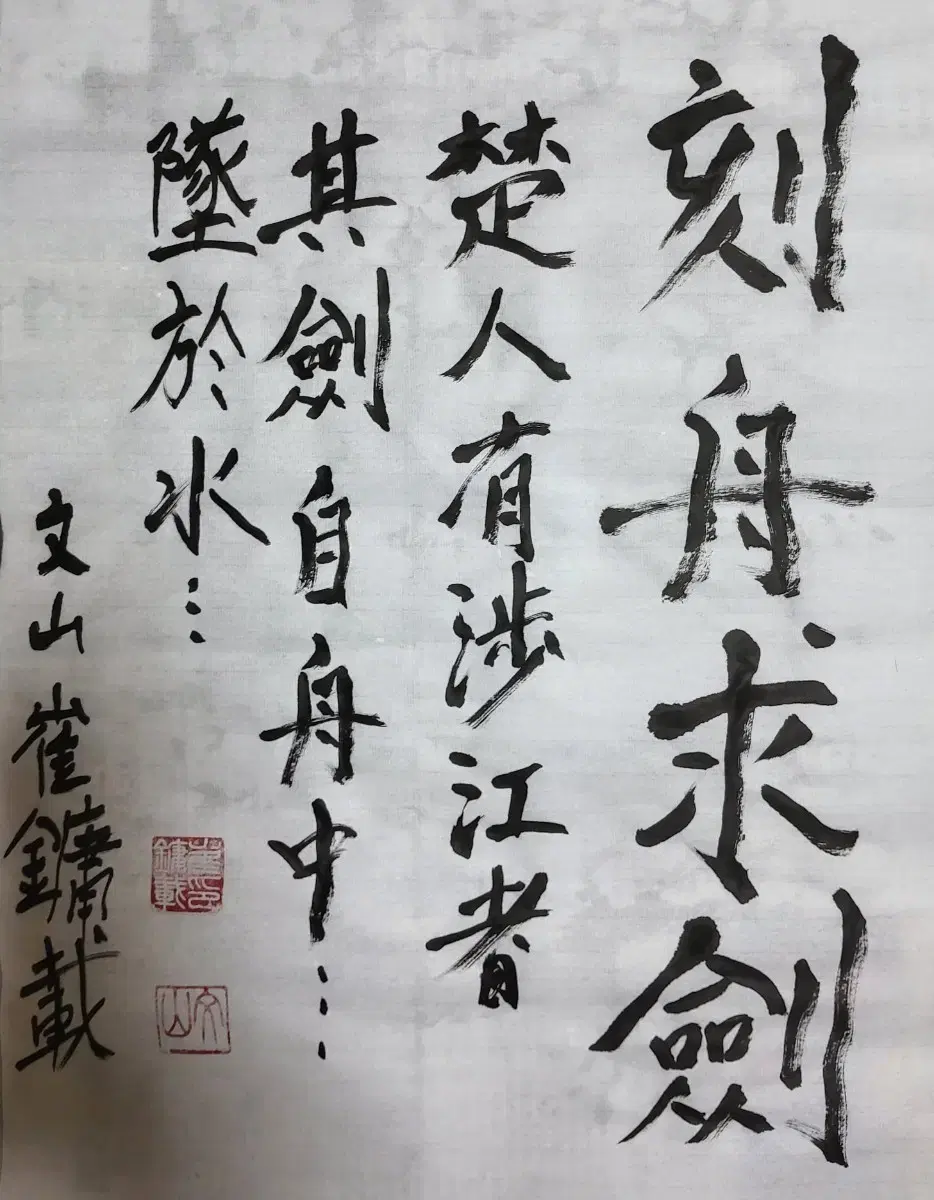 刻舟求劍
楚人有涉江者
其劍自舟中…
墜於水…
文山 崔鏞載
崔印鏞載
文山